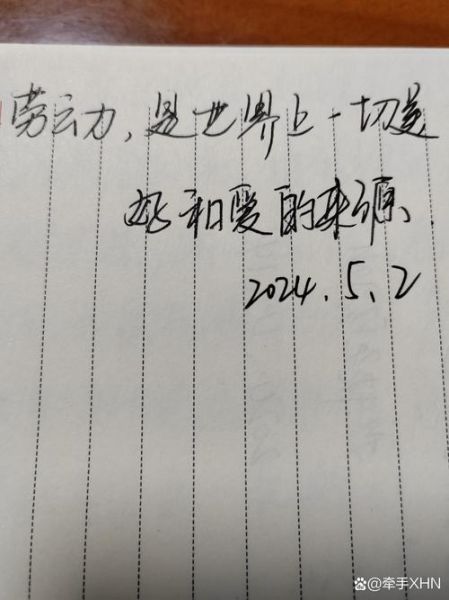 劳动,是世界上一切美
好和爱的来源、
2024.5.2
@牵手XHN